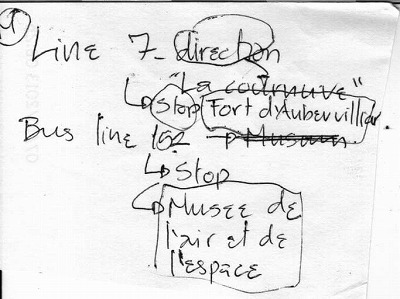 1
Line 7 - direction
"La courneuve"
Stop Fort d'Aubervillier.
Bus line 152
Stop
Musee de
l'air et de
l'espace